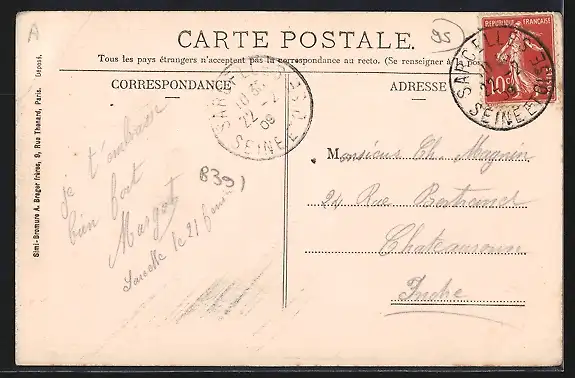 A
95
CARTE POSTALE.
Tous les pays étrangers n'acceptent pas la correspondance au recto. (Se renseigner à la pos
CORRESPONDANCE
ADRESSE
REPUBLIQUE FRANÇAISE
10
SARCELLES
22 -2
09
SEINE-ET-OISE
SARCELLES
22 -2
09
SEINE-ET-OISE
je t'embrasse
bien fort
Margot
Sarcelle le 21 février
839)
Monsieur Ch. Magnin
24 Rue Bertrand
Chateauroux
Indre
Simi-Bromure A. Breger frères, 9, Rue Thenard, Paris. Déposé.